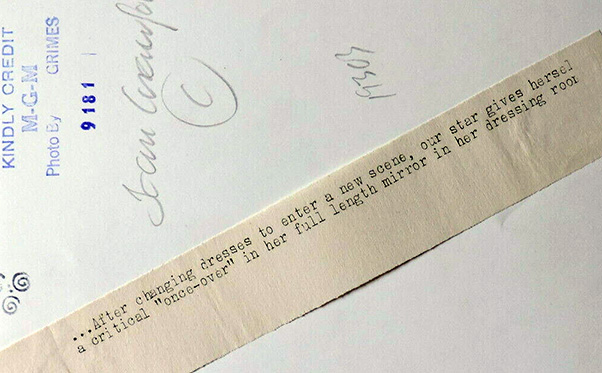 KINDLY CREDIT
M-G-M
Photo By GRIMES
9181
Joan Crawfo
C
...After changing dresses to enter a new scene, our star gives hersel
a critical "once-over" in her full length mirror in her dressing room